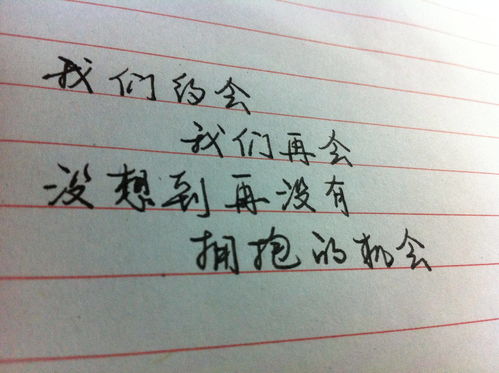 我们约会
我们再会
没想到再没有
拥抱的机会